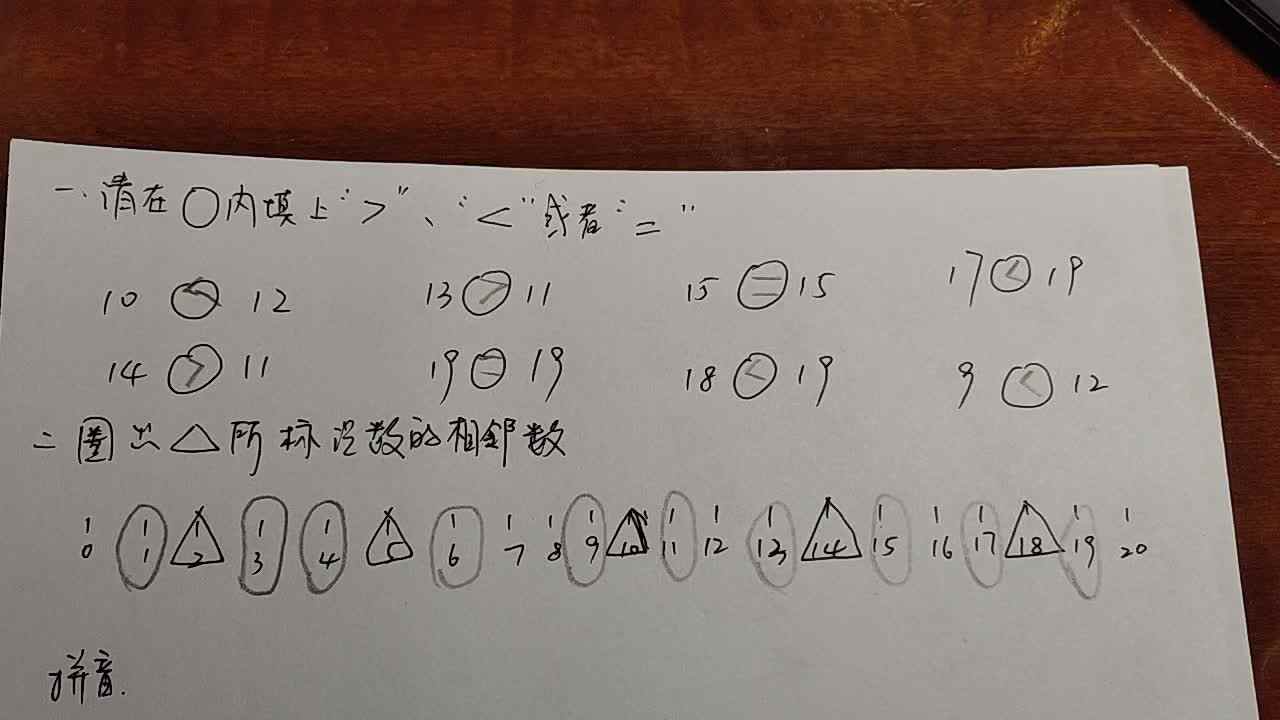 一、请在○内填上“>”、“<”或者“=”
10 < 12 13 > 11 15 = 15 17 < 19
14 > 11 19 = 19 18 < 19 9 < 12
二 圈出△所标记数的相邻数
0 1 2 3 4 5 6 7 8 9 10 11 12 13 14 15 16 17 18 19 20
拼音.